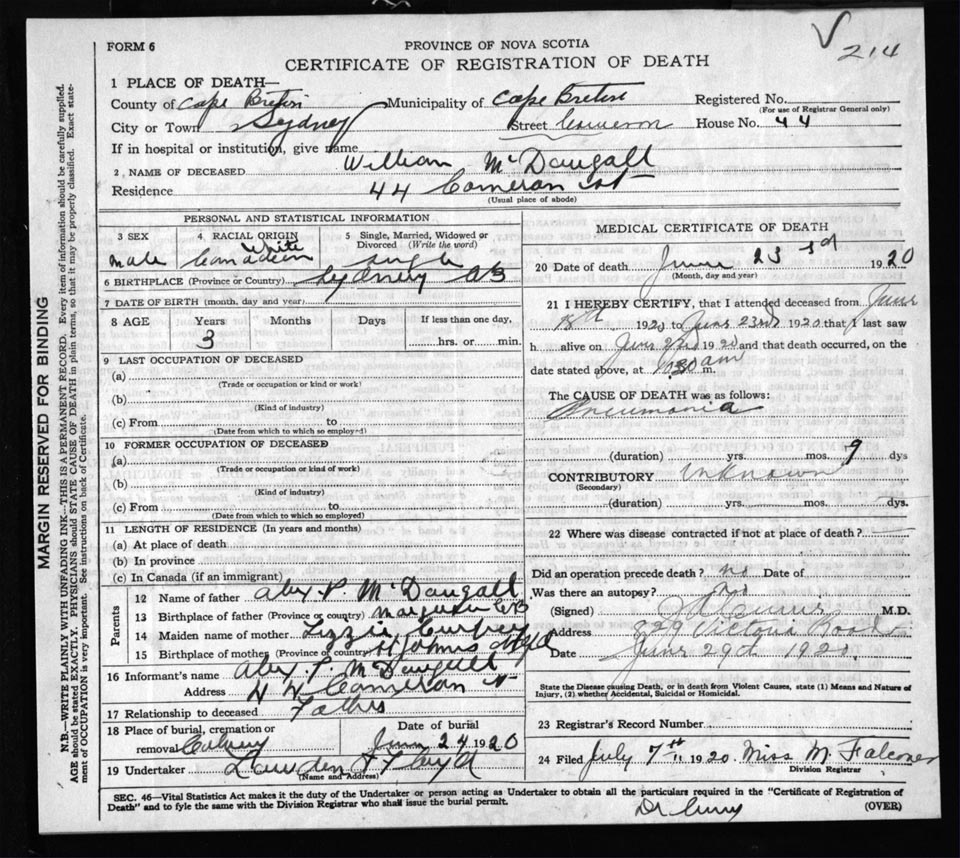 214
FORM 6
PROVINCE OF NOVA SCOTIA
CERTIFICATE OF REGISTRATION OF DEATH
1 PLACE OF DEATH—
County of Cape Breton Municipality of Cape Breton Registered No.
(For use of Registrar General only)
City or Town Sydney Street Cameron House No. 44
If in hospital or institution, give name
2 NAME OF DECEASED William McDougall
Residence 44 Cameron St
(Usual place of abode)
MARGIN RESERVED FOR BINDING
N.B.—WRITE PLAINLY WITH UNFADING INK—THIS IS A PERMANENT RECORD. Every item of information should be carefully supplied.
AGE should be stated EXACTLY. PHYSICIANS should STATE CAUSE OF DEATH in plain terms, so that it may be properly classified. Exact state-
ment of OCCUPATION is very important. See instructions on back of Certificate.
PERSONAL AND STATISTICAL INFORMATION
3 SEX
Male
4 RACIAL ORIGIN
White
Canadian
5 Single, Married, Widowed or
Divorced (Write the word)
Single
6 BIRTHPLACE (Province or Country) Sydney CB
7 DATE OF BIRTH (month, day and year)
8 AGE Years Months Days If less than one day,
3 hrs. or min.
9 LAST OCCUPATION OF DECEASED
(a)
(Trade or occupation or kind or work)
(b)
(Kind of industry)
(c) From to
(Date from which to which so employed)
10 FORMER OCCUPATION OF DECEASED
(a)
(Trade or occupation or kind of work)
(b)
(Kind of industry)
(c) From to
(Date from which to which so employed)
11 LENGTH OF RESIDENCE (In years and months)
(a) At place of death
(b) In province
(c) In Canada (if an immigrant)
Parents
12 Name of father Alex P. McDougall
13 Birthplace of father (Province or country) Margaree CB
14 Maiden name of mother Lizzie
15 Birthplace of mother (Province or country) St Johns Nfld
16 Informant's name Alex P. McDougall
Address 44 Cameron St
17 Relationship to deceased Father
18 Place of burial, cremation or
removal Calvary
Date of burial
June 24 1920
19 Undertaker Lowden & Floyd
(Name and Address)
MEDICAL CERTIFICATE OF DEATH
20 Date of death June 23rd 1920
(Month, day and year)
21 I HEREBY CERTIFY, that I attended deceased from June
1920 to June 23rd 1920 that I last saw
h alive on June 1920 and that death occurred, on the
date stated above, at 10.30 am m.
The CAUSE OF DEATH was as follows:
Pneumonia
(duration) yrs. mos. 9 dys
CONTRIBUTORY Unknown
(Secondary)
(duration) yrs. mos. dys.
22 Where was disease contracted if not at place of death?
Did an operation precede death? no Date of
Was there an autopsy? no
(Signed) M.D.
Address 329 Victoria Road
Date June 29th 1920
State the Disease causing Death, or in death from Violent Causes, state (1) Means and Nature of
Injury, (2) whether Accidental, Suicidal or Homicidal.
23 Registrar's Record Number
24 Filed July 7th 1920 Miss M. Falconer
Division Registrar
SEC. 46—Vital Statistics Act makes it the duty of the Undertaker or person acting as Undertaker to obtain all the particulars required in the "Certificate of Registration of
Death" and to fyle the same with the Division Registrar who shall issue the burial permit.
(OVER)
Dr